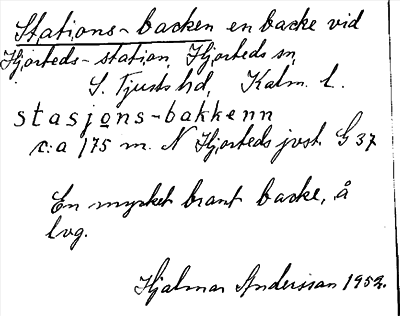 Stations-backen en backe vid
Hjorteds-station, Hjorteds sn,
S. Tjusts hd, Kalm. l.
stasjons-bakkenn
c:a 175 m. N Hjorteds jvst. G 37
En mycket brant backe, å
lvg.
Hjalmar Andersson 1952.